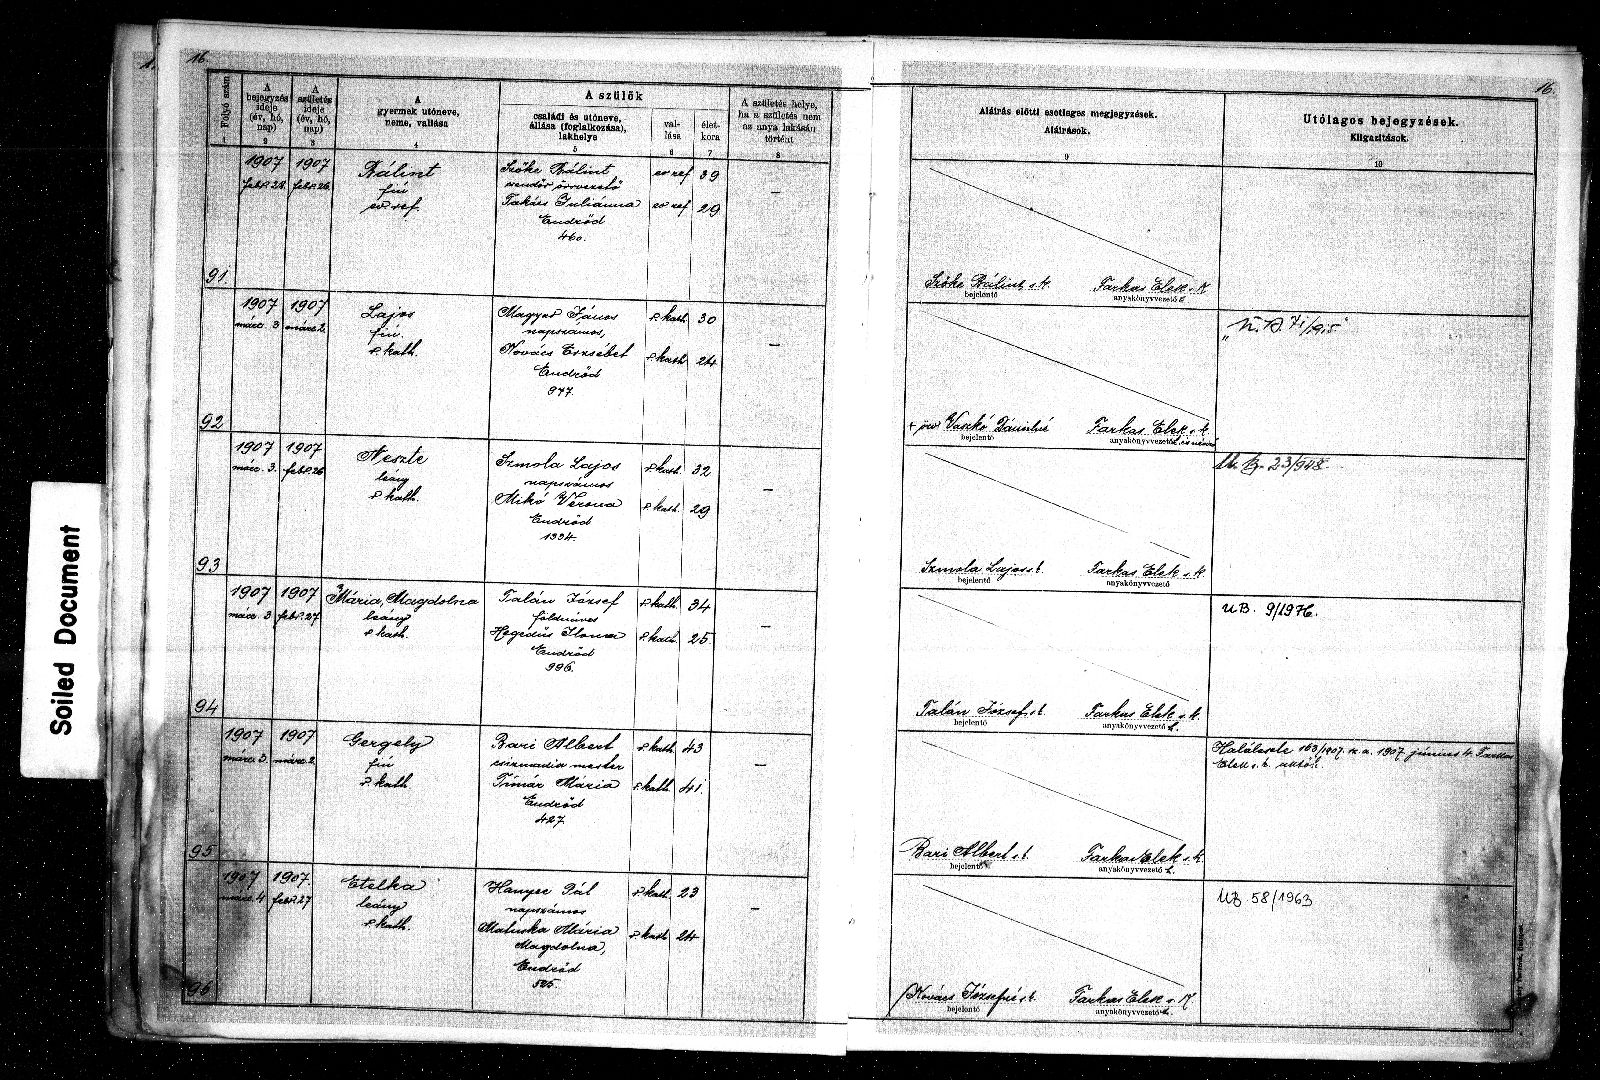 16.
16.
Folyó szám
A bejegyzés ideje (év, hó, nap)
A születés ideje (év, hó, nap)
A gyermek utóneve, neme, vallása
A szülők
családi és utóneve, állása (foglalkozása), lakhelye
vallása
életkora
A születés helye, ha a születés nem az anya lakásán történt
Aláírás előtti esetleges megjegyzések.
Aláírások.
Utólagos bejegyzések.
Kiigazítások.
1 2 3 4 5 6 7 8 9 10
91.
1907 febr. 28.
1907 febr. 26.
Bálint
fiú
ev ref.
Szőke Bálint
rendőr őrvezető
Takács Juliánna
Endrőd
460.
ev ref 39
ev ref 29
—
Szőke Bálint s.k.
bejelentő
Farkas Elek s.k.
anyakönyvvezető
92
1907 márc. 3
1907 márc. 2.
Lajos
fiú.
r. kath.
Magyar János
napszámos,
Kovács Erzsébet
Endrőd
947.
r. kath. 30
r. kath 24
—
+ özv Vaszkó Dánielné
bejelentő
Farkas Elek s.k.
anyakönyvvezető
93
1907 márc. 3.
1907 febr. 26
Neszte
leány
r. kath.
Szmola Lajos
napszámos
Mikó Verona
Endrőd
1334.
r. kath. 32
r. kath. 29
—
Szmola Lajos s.t.
bejelentő
Farkas Elek s.k.
anyakönyvvezető
23/948.
94
1907 márc. 3
1907 febr. 27
Mária, Magdolna
leány
r. kath.
Talán József
földműves
Hegedüs Ilona
Endrőd
996.
r. kath. 34
r. kath. 25
—
Talán József s.t.
bejelentő
Farkas Elek s.k.
anyakönyvvezető
UB. 9/1976.
95
1907 márc. 3.
1907 márc. 2
Gergely
fiú
r. kath.
Bari Albert
csizmadia mester
Timár Mária
Endrőd
427.
r. kath. 43
r. kath. 41.
—
Bari Albert s.t.
bejelentő
Farkas Elek s.k.
anyakönyvvezető
Halálesete 163/1907. 1907 június 4. Farkas
Elek s.k.
96
1907 márc. 4
1907. febr. 27
Etelka
leány
r. kath.
Hanyec Pál
napszámos
Matuska Mária
Magdolna,
Endrőd
525.
r. kath. 23
r. kath 24
—
Kovács Józsefné s.t.
bejelentő
Farkas Elek s.k.
anyakönyvvezető
UB 58/1963
Soiled Document